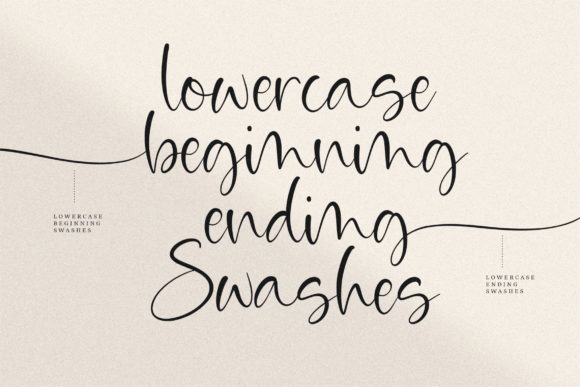 lowercase
beginning
ending
Swashes
LOWERCASE
BEGINNING
SWASHES
LOWERCASE
ENDING
SWASHES